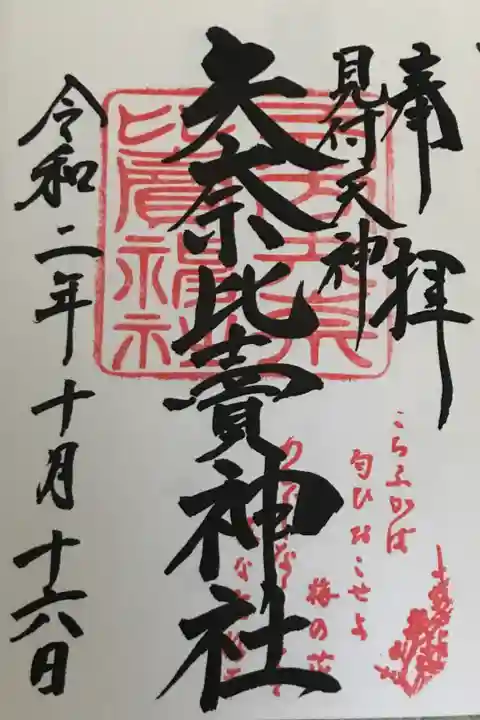 奉拝
見付天神
矢奈比賣神社
令和二年十月十六日
こちふかば
匂ひおこせよ
梅の花